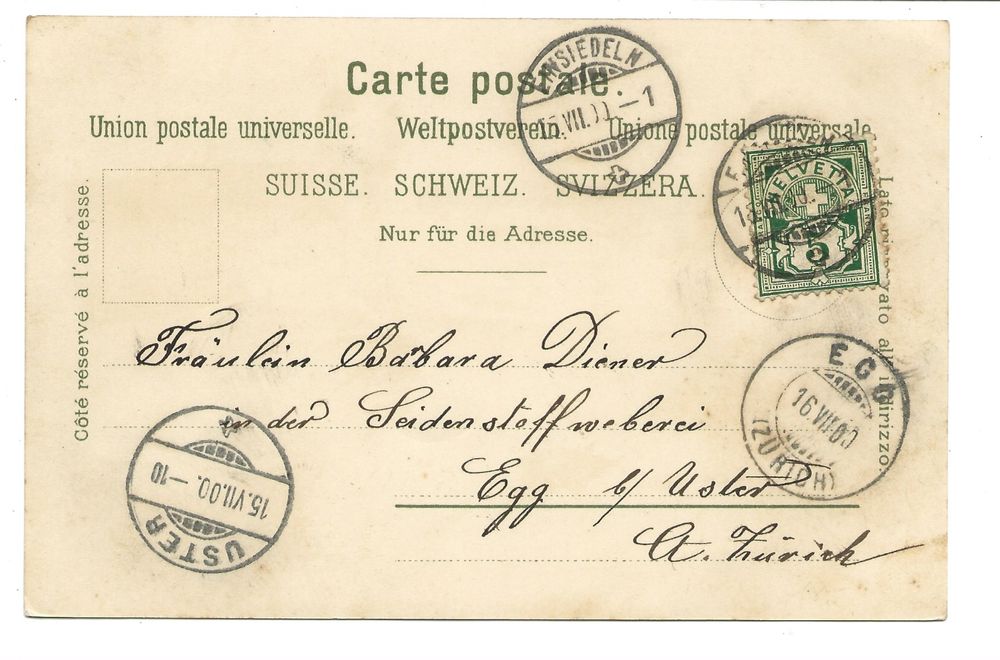 Carte postale.
Union postale universelle. Weltpostverein. Unione postale universale
SUISSE. SCHWEIZ. SVIZZERA.
Nur für die Adresse.
Côté réservé à l'adresse.
Lato riservato all'indirizzo.
EINSIEDELN
15.VII.00.–1
HELVETIA
5
Fräulein Barbara Diener
in der Seidenstoffweberei
Egg b/ Uster
Ct. Zürich
EGG
16 VII 00
(ZÜRICH)
15.VII.00.–10
USTER